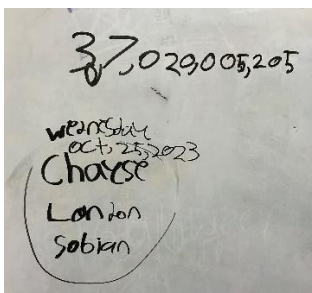 37,020,005,205
wednesday
oct, 25, 2023
Chayse
London
Sobian